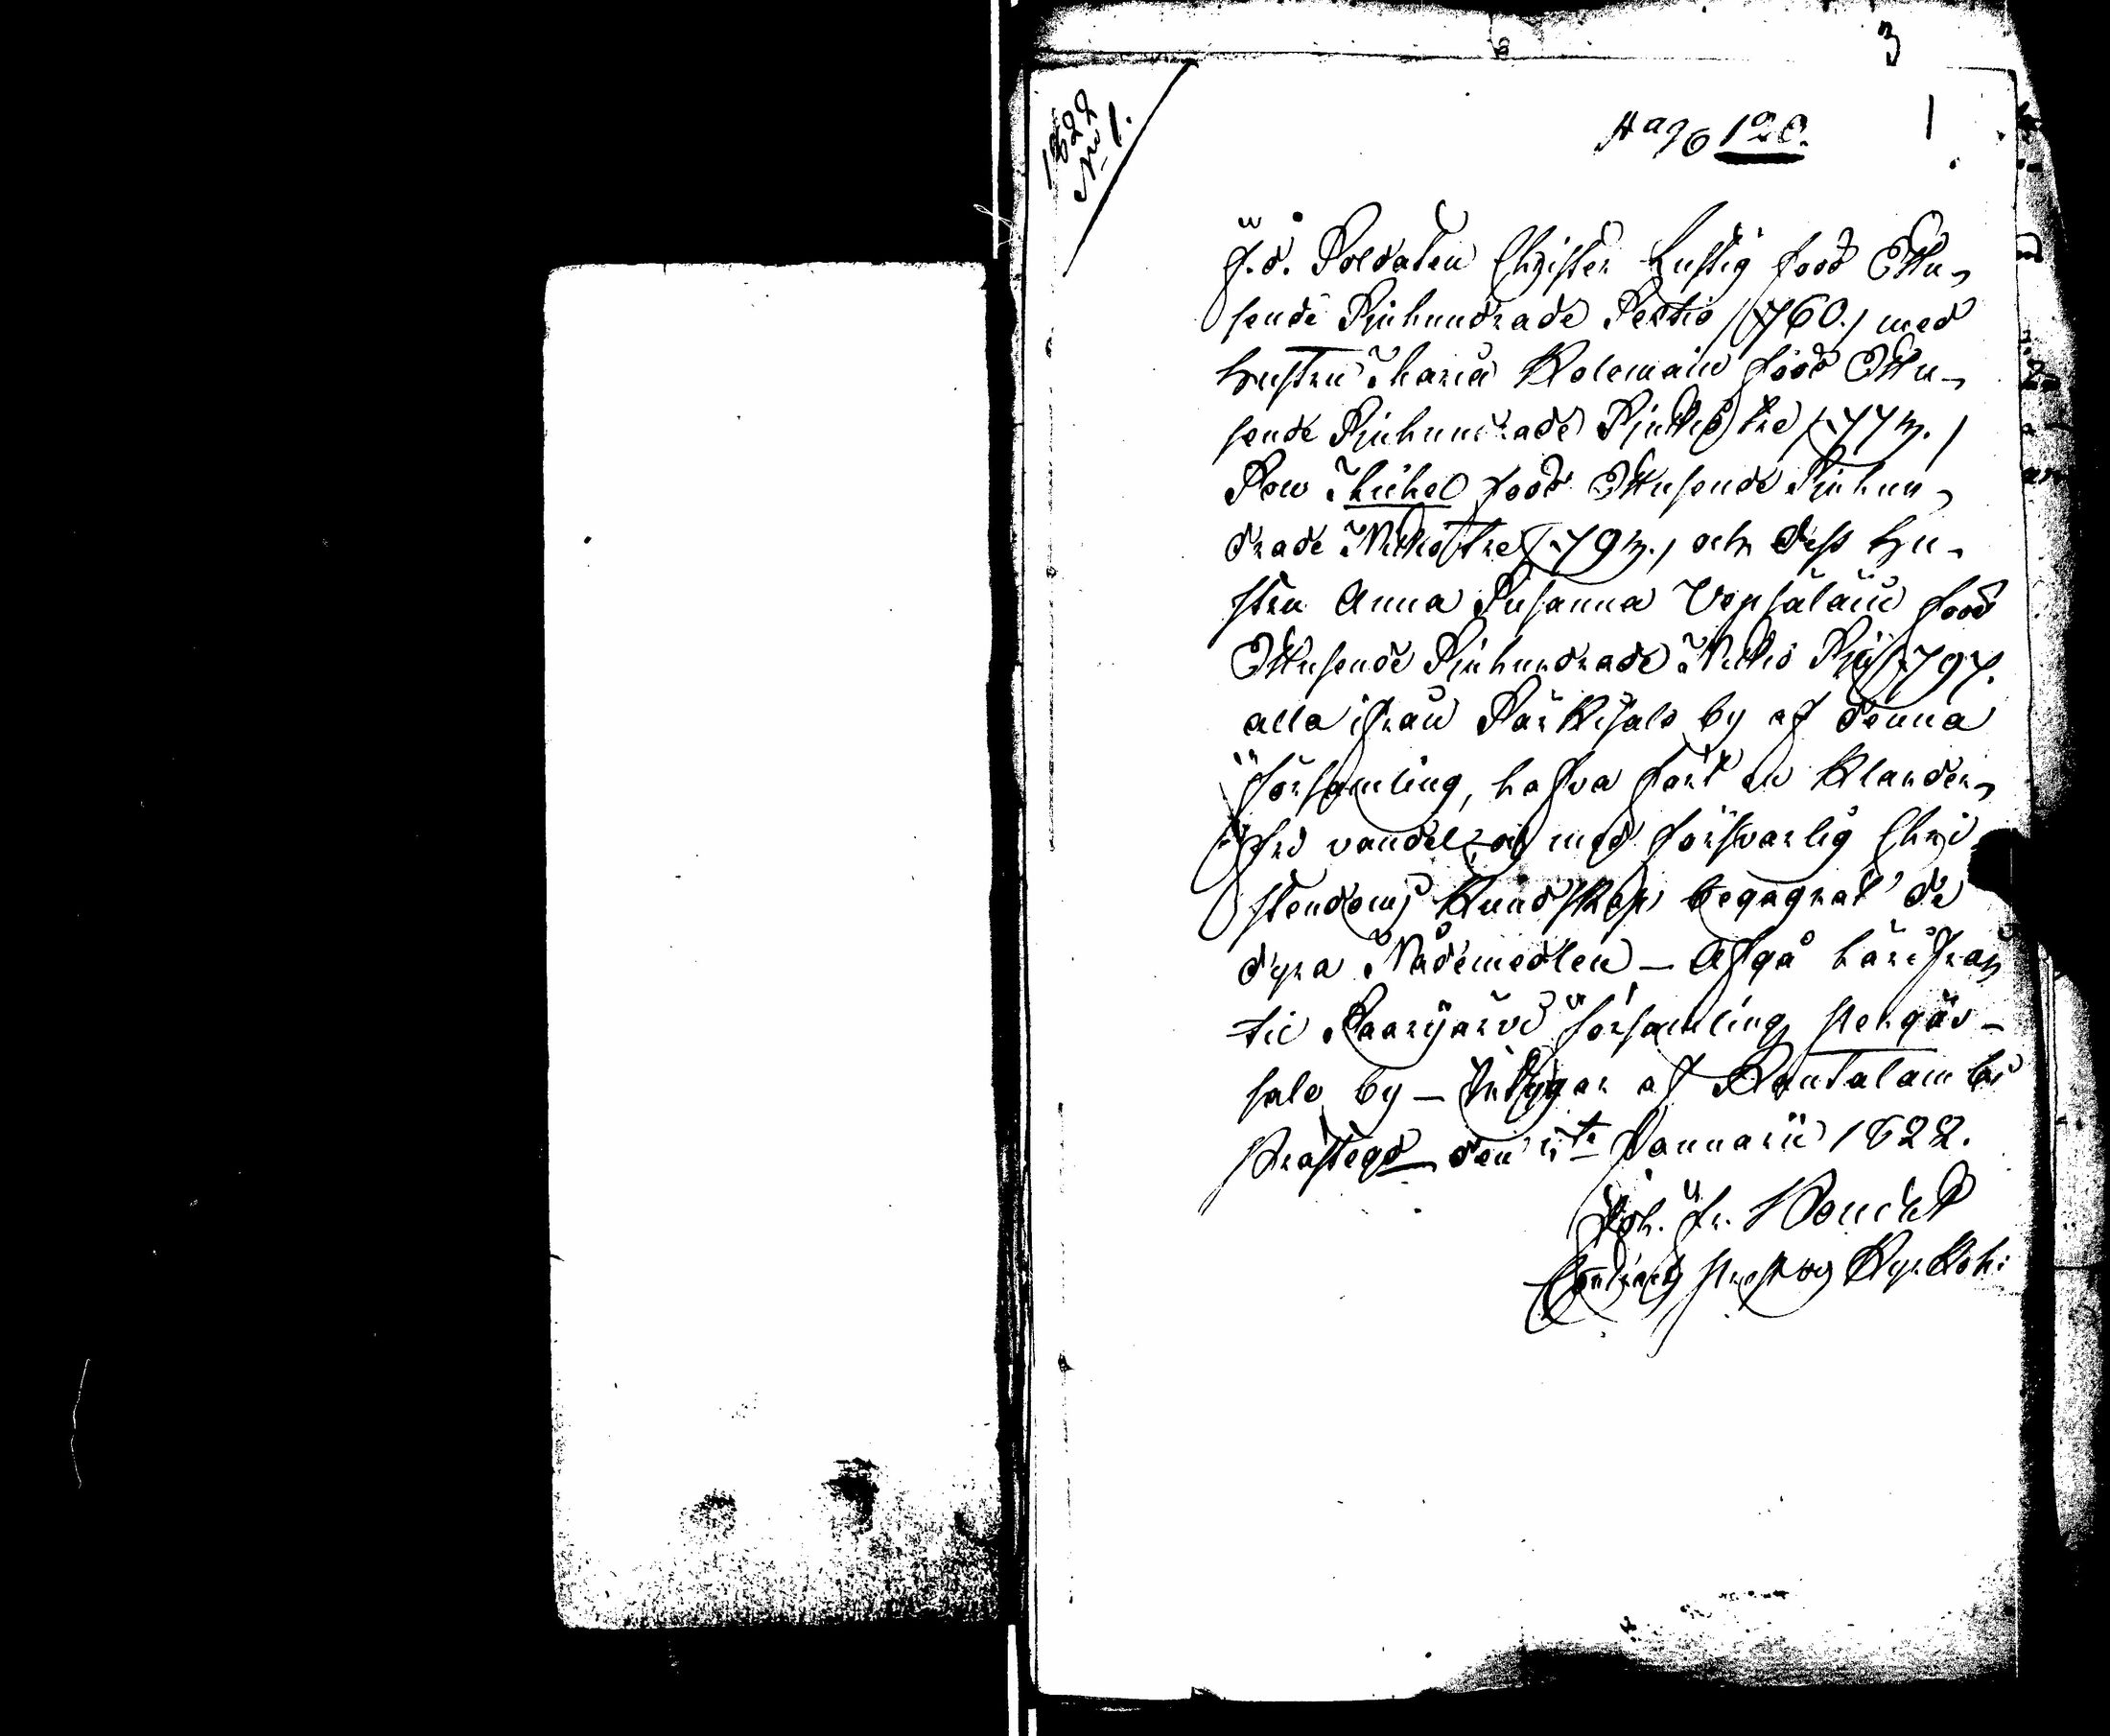 3
1822
No 1.
pag 120.
1
F.d. Soldaten Christer Lustig född Ettu-
sende Sjuhundrade Sextio /1760./ med
hustru Maria Kolemain född Ettu-
sende Sjuhundrade Sjuttio tre /1773./
Son Michel född Ettusende Sjuhun-
drade Nittio tre /1793./ och dess hu-
stru Anna Susanna Vepsäläin född
Ettusende Sjuhundrade Nittio Sju /1797.
alla ifrån Särkisalo by af denna
församling, hafva fört en klander-
fri vandel, och med försvarlig Chri-
stendoms kundskap begagnat de
dyra Nådemedlen — Afgå härifrån
til församling
salo by — Intygar af Rautalambi
Prästegd den 5te Januarii 1822.
Joh. Fr.
Contracts Prost og Kyrkoh: